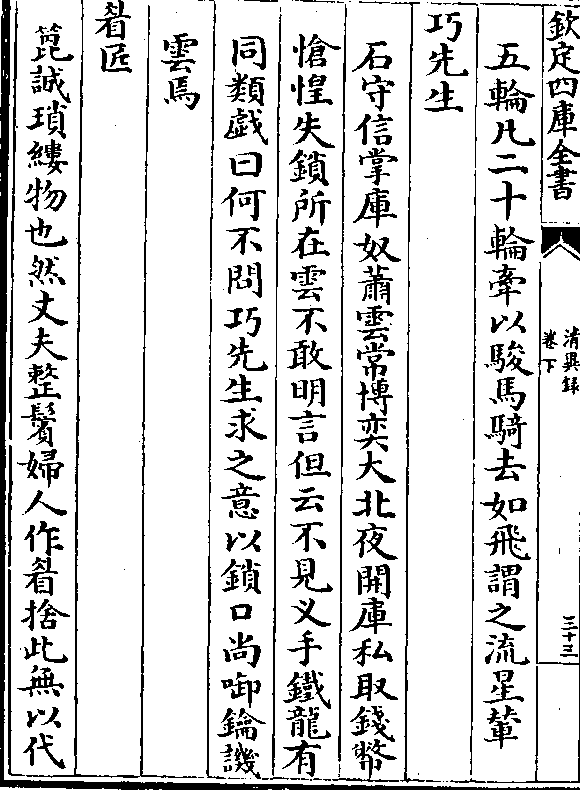 欽定四庫全書
清異錄
卷下
三十三
五輪凡二十輪牽以駿馬騎去如飛謂之流星輦
巧先生
石守信掌庫奴蕭雲常博奕大北夜開庫私取錢幣
愴惶失鎖所在雲不敢明言但云不見义手鐵龍有
同類戯曰何不問巧先生求之意以鎖口尚啣鑰譏
雲焉
㫺匠
箆誠瑣縷物也然丈夫整鬢婦人作㫺捨此無以代